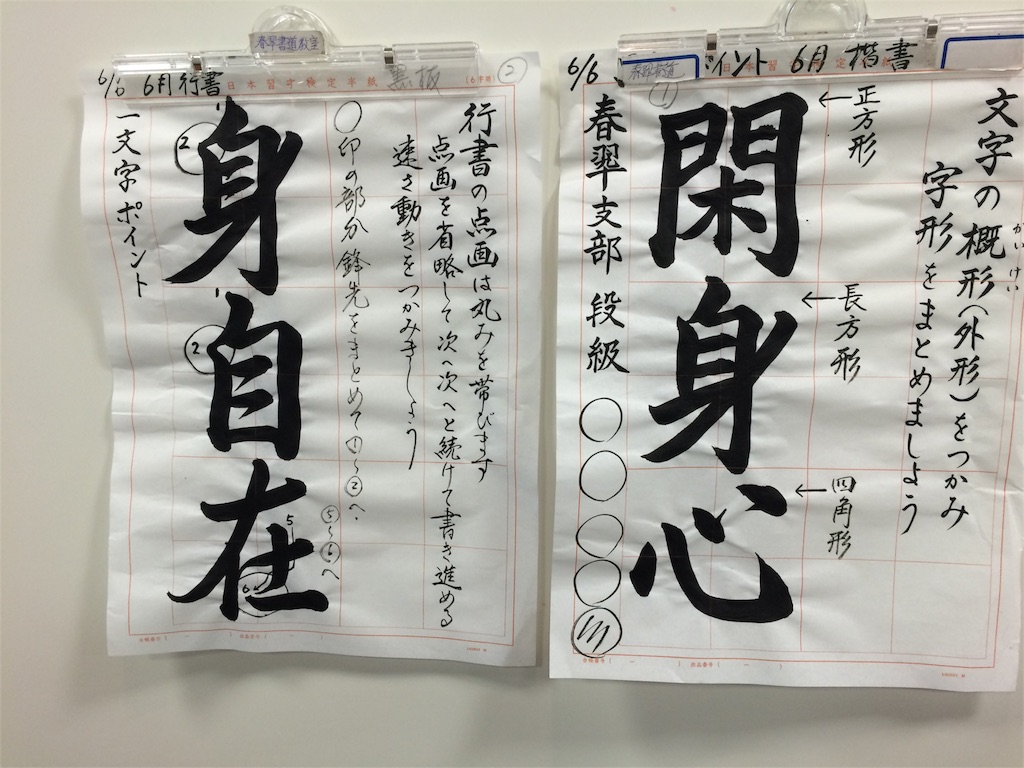 春翠書道
6/6
ポイント 6月 楷書
文字の概形(外形)をつかみ
がいけい
字形をまとめましょう
←正方形
←長方形
←四角形
閑身心
①
春翠支部 段級 ○○○○
春翠書道教室
6/6
6月行書
日本習字検定半紙
黒板
(6字用)
②
行書の点画は丸みを帯びます
点画を省略して次へ次へと続けて書き進める
速さ動きをつかみましょう
○印の部分鋒先をまとめて①〜②へ
⑤〜⑥へ
身自在
2
2
5
一文字ポイント